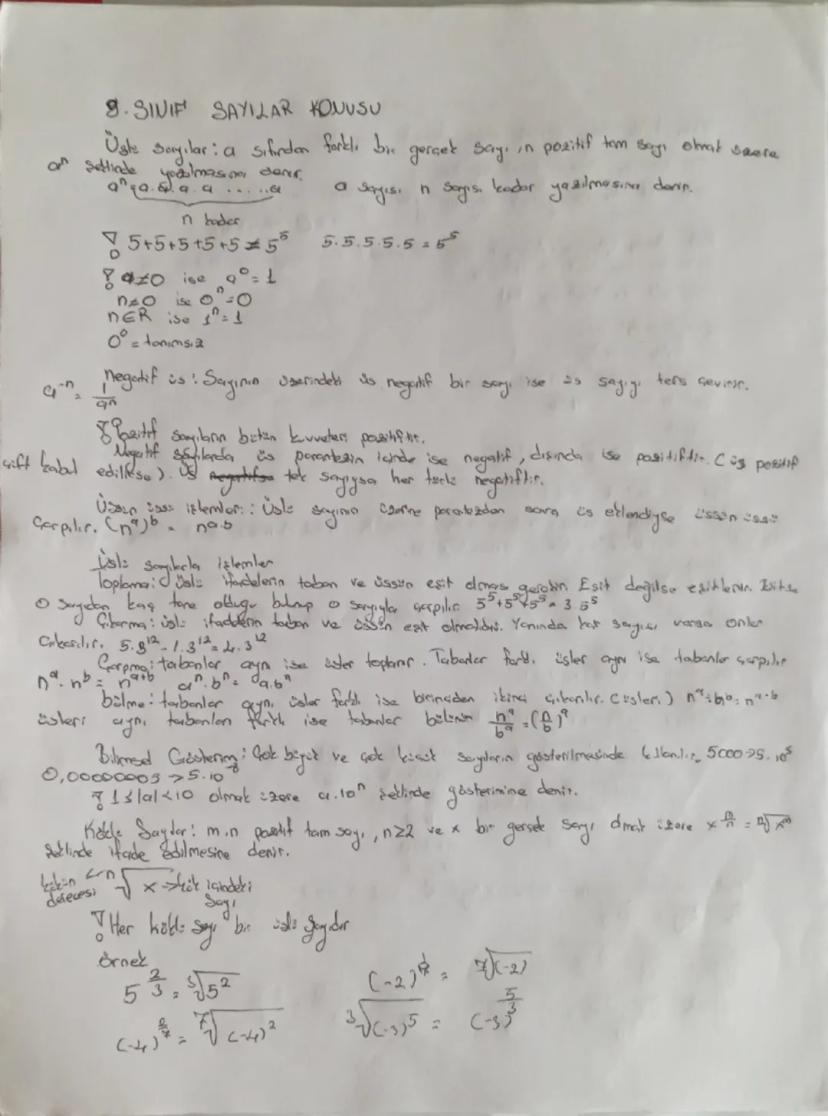 9. SINIF SAYILAR KONUSU
Üslü sayılar: a sıfırdan farklı bir gerçek sayı, n pozitif tam sayı olmak üzere
aⁿ şeklinde yazılmasına denir.
aⁿ = a.a.a.a.....a a sayısı n sayısı kadar yazılmasına denir.
n kadar
! 5+5+5+5+5 ≠ 5⁵ 5.5.5.5.5 = 5⁵
! a≠0 ise a⁰ = 1
n≠0 ise 0ⁿ = 0
n∈R ise 1ⁿ = 1
0⁰ = tanımsız
Negatif üs: Sayının üzerindeki üs negatif bir sayı ise üs sayıyı ters çevirir.
a⁻ⁿ = 1/aⁿ
! Pozitif sayıların bütün kuvvetleri pozitiftir.
Negatif sayılarda üs parantezin içinde ise negatif, dışında ise pozitiftir. (üs pozitif
çift kabul edilirse). Üs tek sayıysa her türlü negatiftir.
Üssün üssü işlemler: Üslü sayının üzerine parantezden sonra üs eklendiyse üssün üssü
çarpılır. (nᵃ)ᵇ = nᵃ·ᵇ
Üslü sayılarla işlemler
Toplama: Üslü ifadelerin taban ve üssün eşit olması gerekir. Eşit değilse eşitlenir.
o sayıdan kaç tane olduğu bulunup o sayıyla çarpılır. 5⁵+5⁵+5⁵ = 3.5⁵
Çıkarma: üslü ifadelerin taban ve üssün eşit olmalıdır. Yanında kat sayısı varsa onlar
çıkarılır. 5.3¹² - 1.3¹² = 4.3¹²
Çarpma: tabanlar aynı ise üsler toplanır. Tabanlar farklı üsler aynı ise tabanlar çarpılır
nᵃ.nᵇ = nᵃ⁺ᵇ aⁿ.bⁿ = a.bⁿ
bölme: tabanlar aynı, üsler farklı ise birinciden ikinci çıkarılır. (üsleri) nᵃ÷nᵇ = nᵃ⁻ᵇ
üsleri aynı tabanları farklı ise tabanlar bölünür nᵃ/bᵃ = (n/b)ᵃ
Bilimsel Gösterim: Çok büyük ve çok küçük sayıların gösterilmesinde kullanılır. 5000→5.10⁵
0,00000003 → 5.10⁻⁸
! 1≤|a|<10 olmak üzere a.10ⁿ şeklinde gösterimine denir.
Köklü Sayılar: m,n pozitif tam sayı, n≥2 ve x bir gerçek sayı olmak üzere x^(m/n) = ⁿ√xᵐ
şeklinde ifade edilmesine denir.
kökün derecesi ← ⁿ√x → kök içindeki sayı
! Her köklü sayı bir üslü sayıdır
örnek
5^(2/3) = ³√5² (-2)^(1/7) = ⁷√(-2)
(-4)^(2/7) = ⁷√(-4)² ³√(-3)⁵ = (-3)^(5/3)